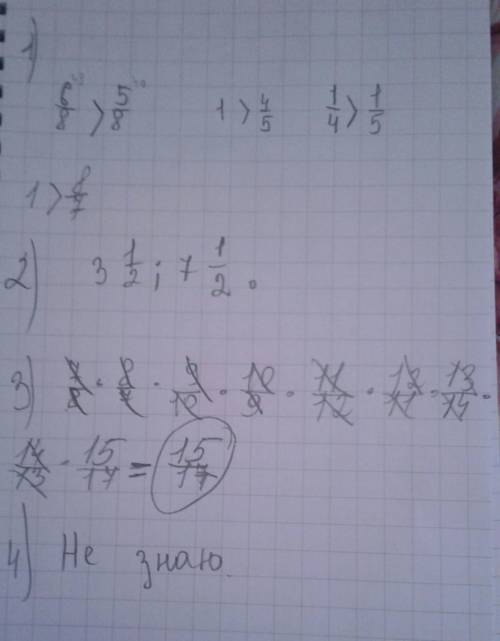 1)
6/8 > 5/8 1 > 4/5 1/4 > 1/5
1 > 8/7
2) 3 1/2 ; 7 1/2 .
3) 7/8 · 8/7 · 9/10 · 10/9 · 11/12 · 12/11 · 13/14 ·
14/13 · 15/17 = 15/17
4) Не знаю.